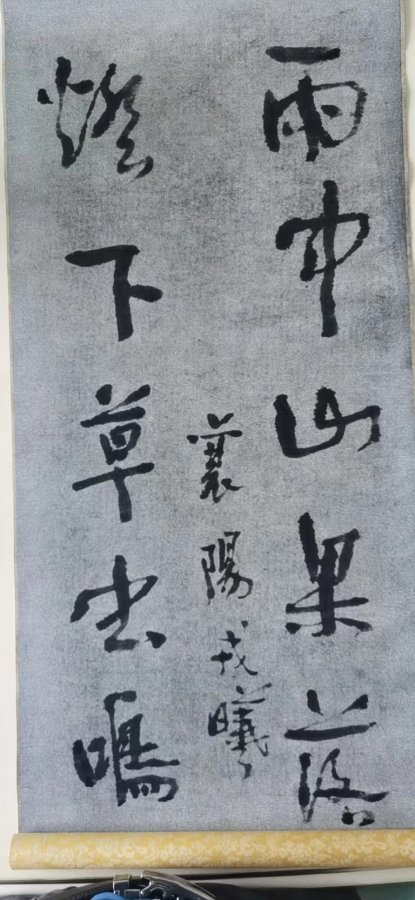 雨中山果落
燈下草虫鳴
襄陽戎曦